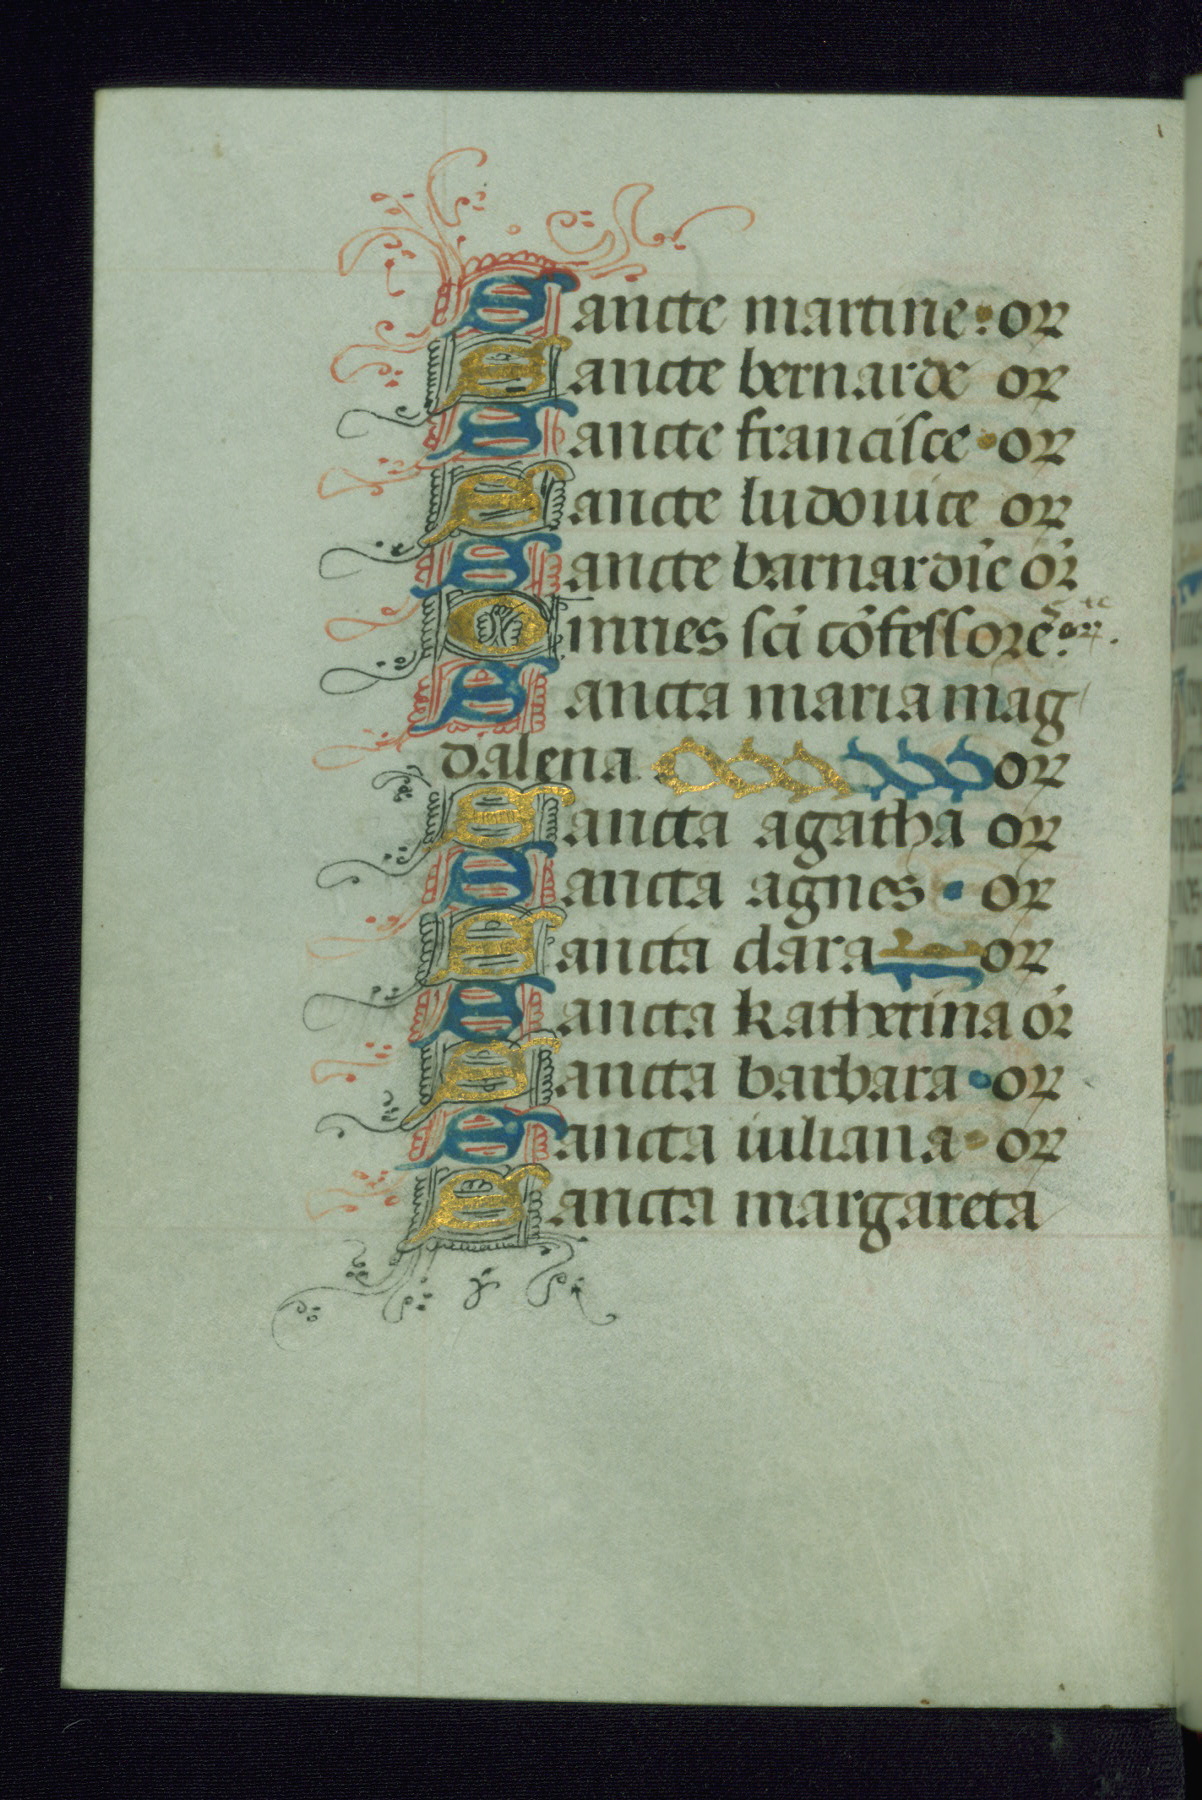 Sancte martine · or
Sancte bernarde or
Sancte francisce · or
Sancte ludouice or
Sancte barnardīe or̄
Omnes scī cōfessorēs or
Sancta maria mag
dalena or
Sancta agatha or
Sancta agnes · or
Sancta clara or
Sancta katherina or̄
Sancta barbara · or
Sancta iuliana · or
Sancta margareta